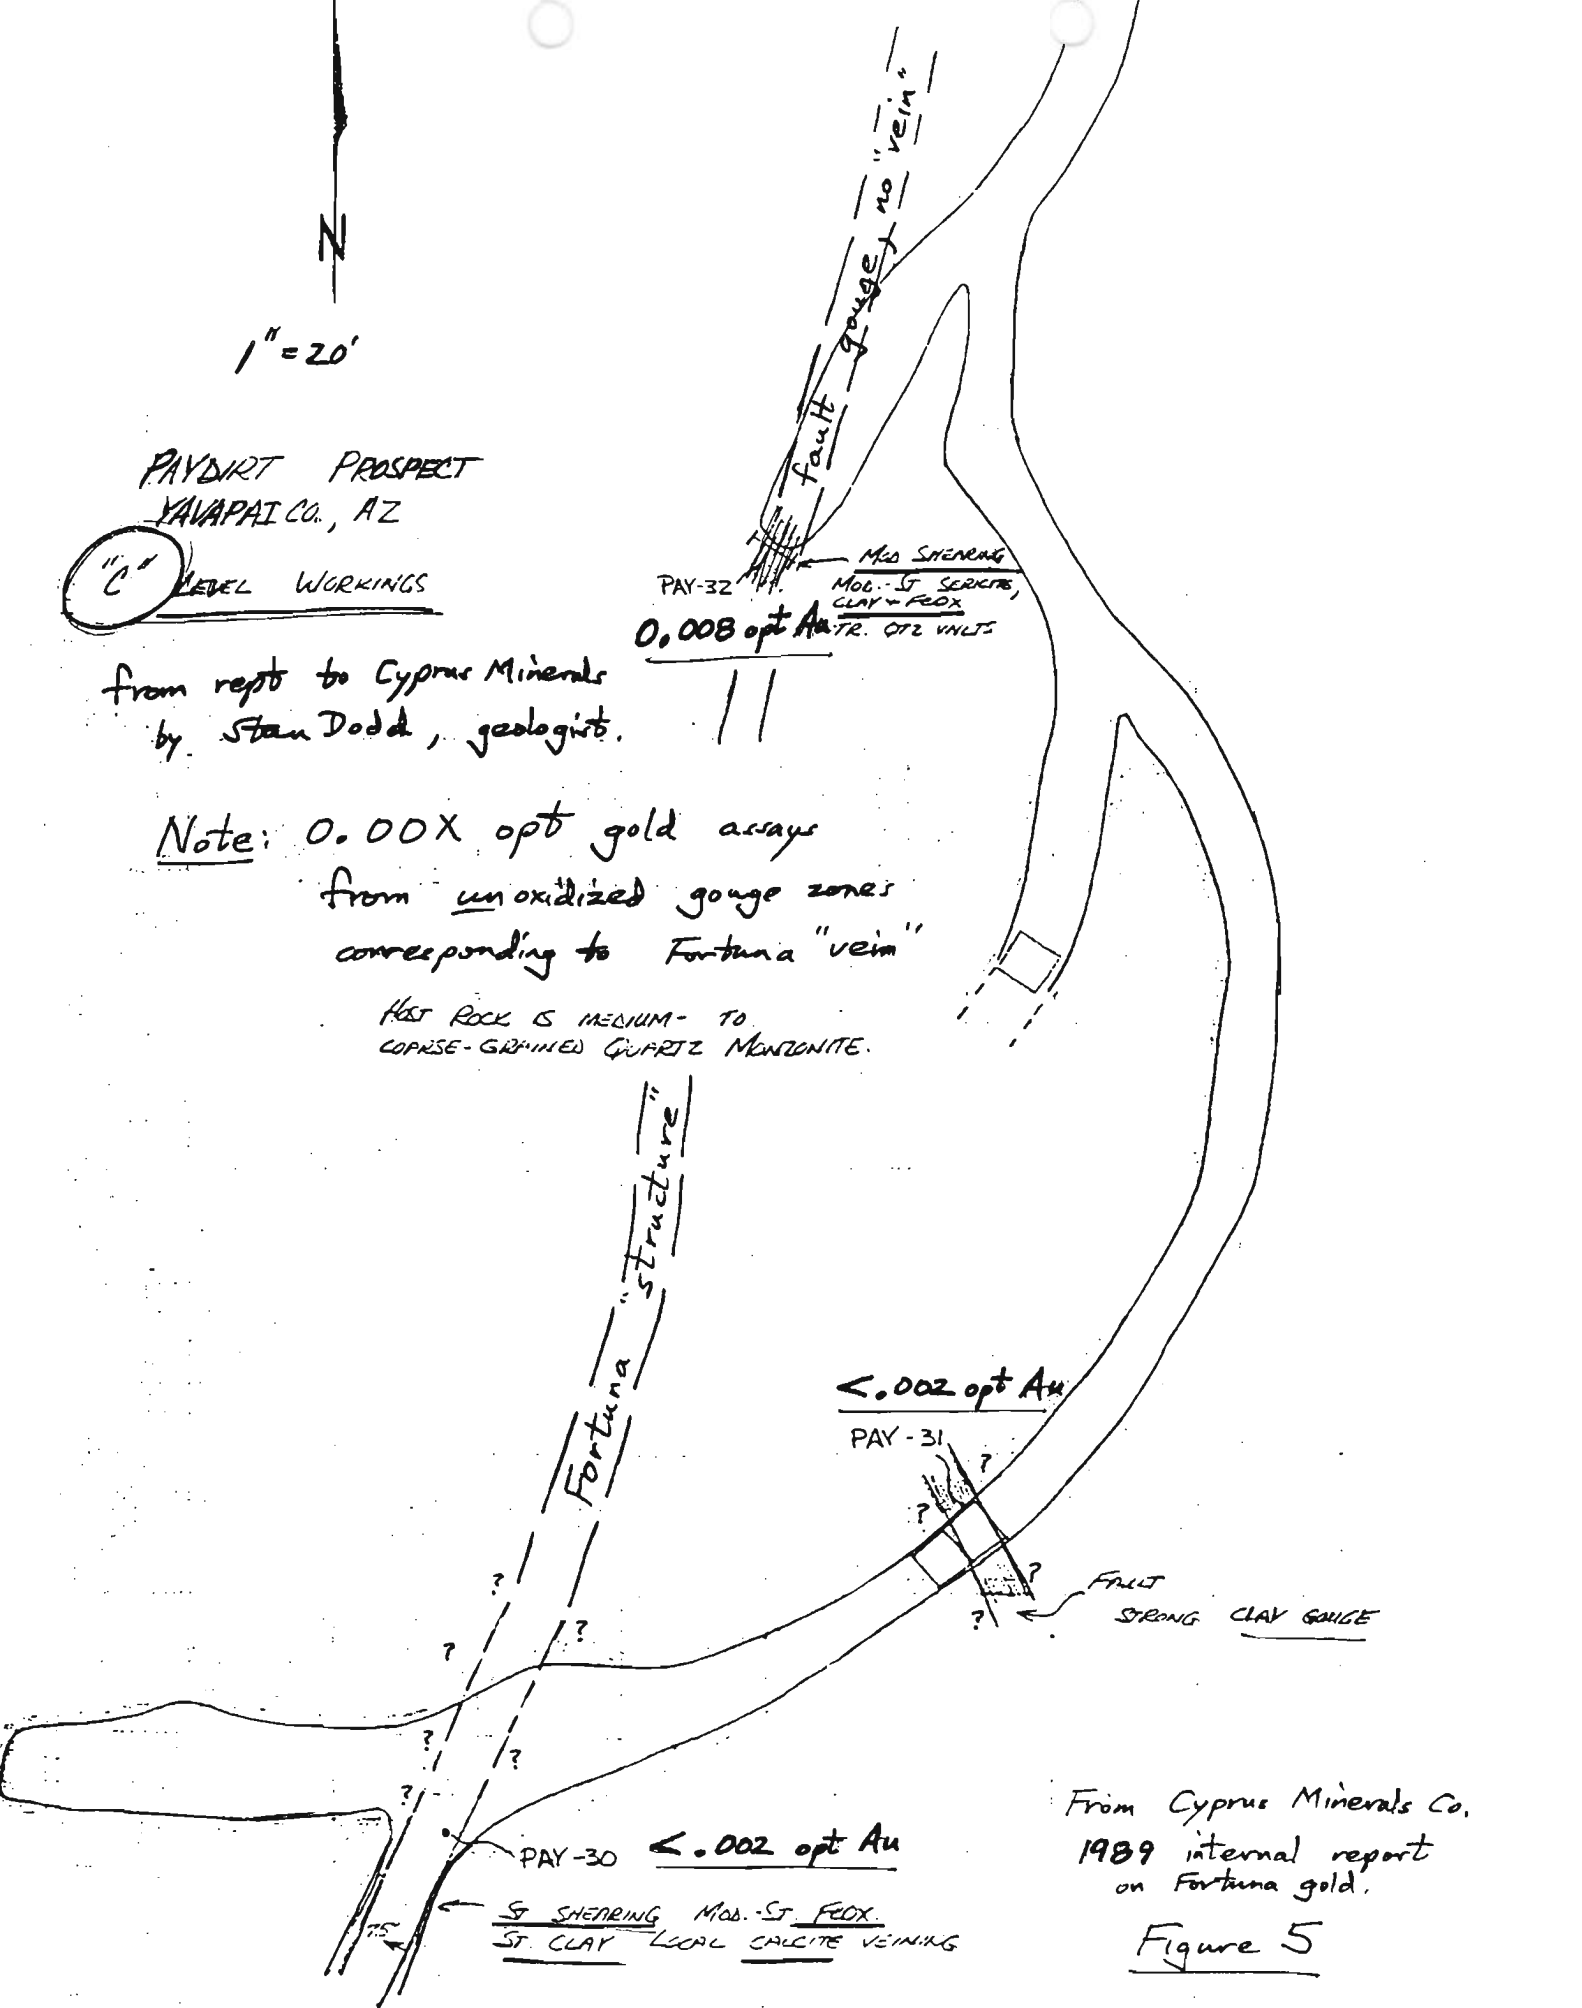 N
1" = 20'
PAYDIRT PROSPECT
YAVAPAI CO., AZ
"C" LEVEL WORKINGS
from rept to Cyprus Minerals
by Stan Dodd, geologist.
Note: 0.00X opt gold assays
from unoxidized gouge zones
corresponding to Fortuna "vein"
HOST ROCK IS MEDIUM- TO
COARSE-GRAINED QUARTZ MONZONITE.
fault gouge, no "vein"
PAY-32
0.008 opt Au
MED SHEARING
MOD.-ST SERICITE,
CLAY + FEOX
TR. QTZ VNLTS
Fortuna "structure"
<.002 opt Au
PAY-31
?
?
?
?
FAULT
STRONG CLAY GOUGE
?
?
?
?
?
?
PAY-30 <.002 opt Au
ST SHEARING MOD.-ST. FEOX
ST. CLAY LOCAL CALCITE VEINING
75
From Cyprus Minerals Co.
1989 internal report
on Fortuna gold.
Figure 5